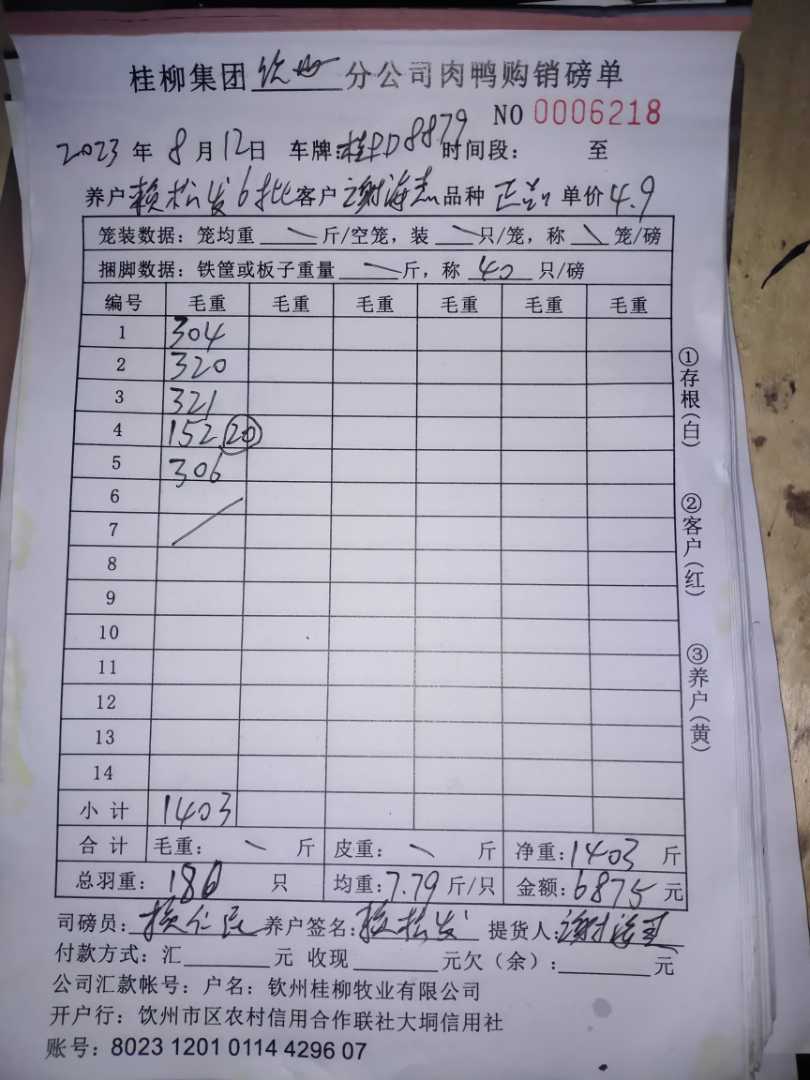 桂柳集团 钦州 分公司肉鸭购销磅单
NO 0006218
2023 年 8 月 12 日 车牌:桂PD8879 时间段: 至
养户 赖松发6批 客户 谢海杰 品种 正品 单价 4.9
笼装数据: 笼均重 \ 斤/空笼, 装 \ 只/笼, 称 \ 笼/磅
捆脚数据: 铁筐或板子重量 \ 斤, 称 40 只/磅
编号 毛重 毛重 毛重 毛重 毛重 毛重
1 304
2 320
3 321
4 152 20
5 306
6
7
8
9
10
11
12
13
14
小计 1403
合计 毛重: \ 斤 皮重: \ 斤 净重:1403 斤
总羽重: 180 只 均重:7.79 斤/只 金额:6875 元
司磅员: 养户签名:赖松发 提货人:谢海杰
付款方式: 汇 元 收现 元欠(余): 元
公司汇款帐号: 户名: 钦州桂柳牧业有限公司
开户行: 饮州市区农村信用合作联社大垌信用社
账号: 8023 1201 0114 4296 07
①存根(白)
②客户(红)
③养户(黄)